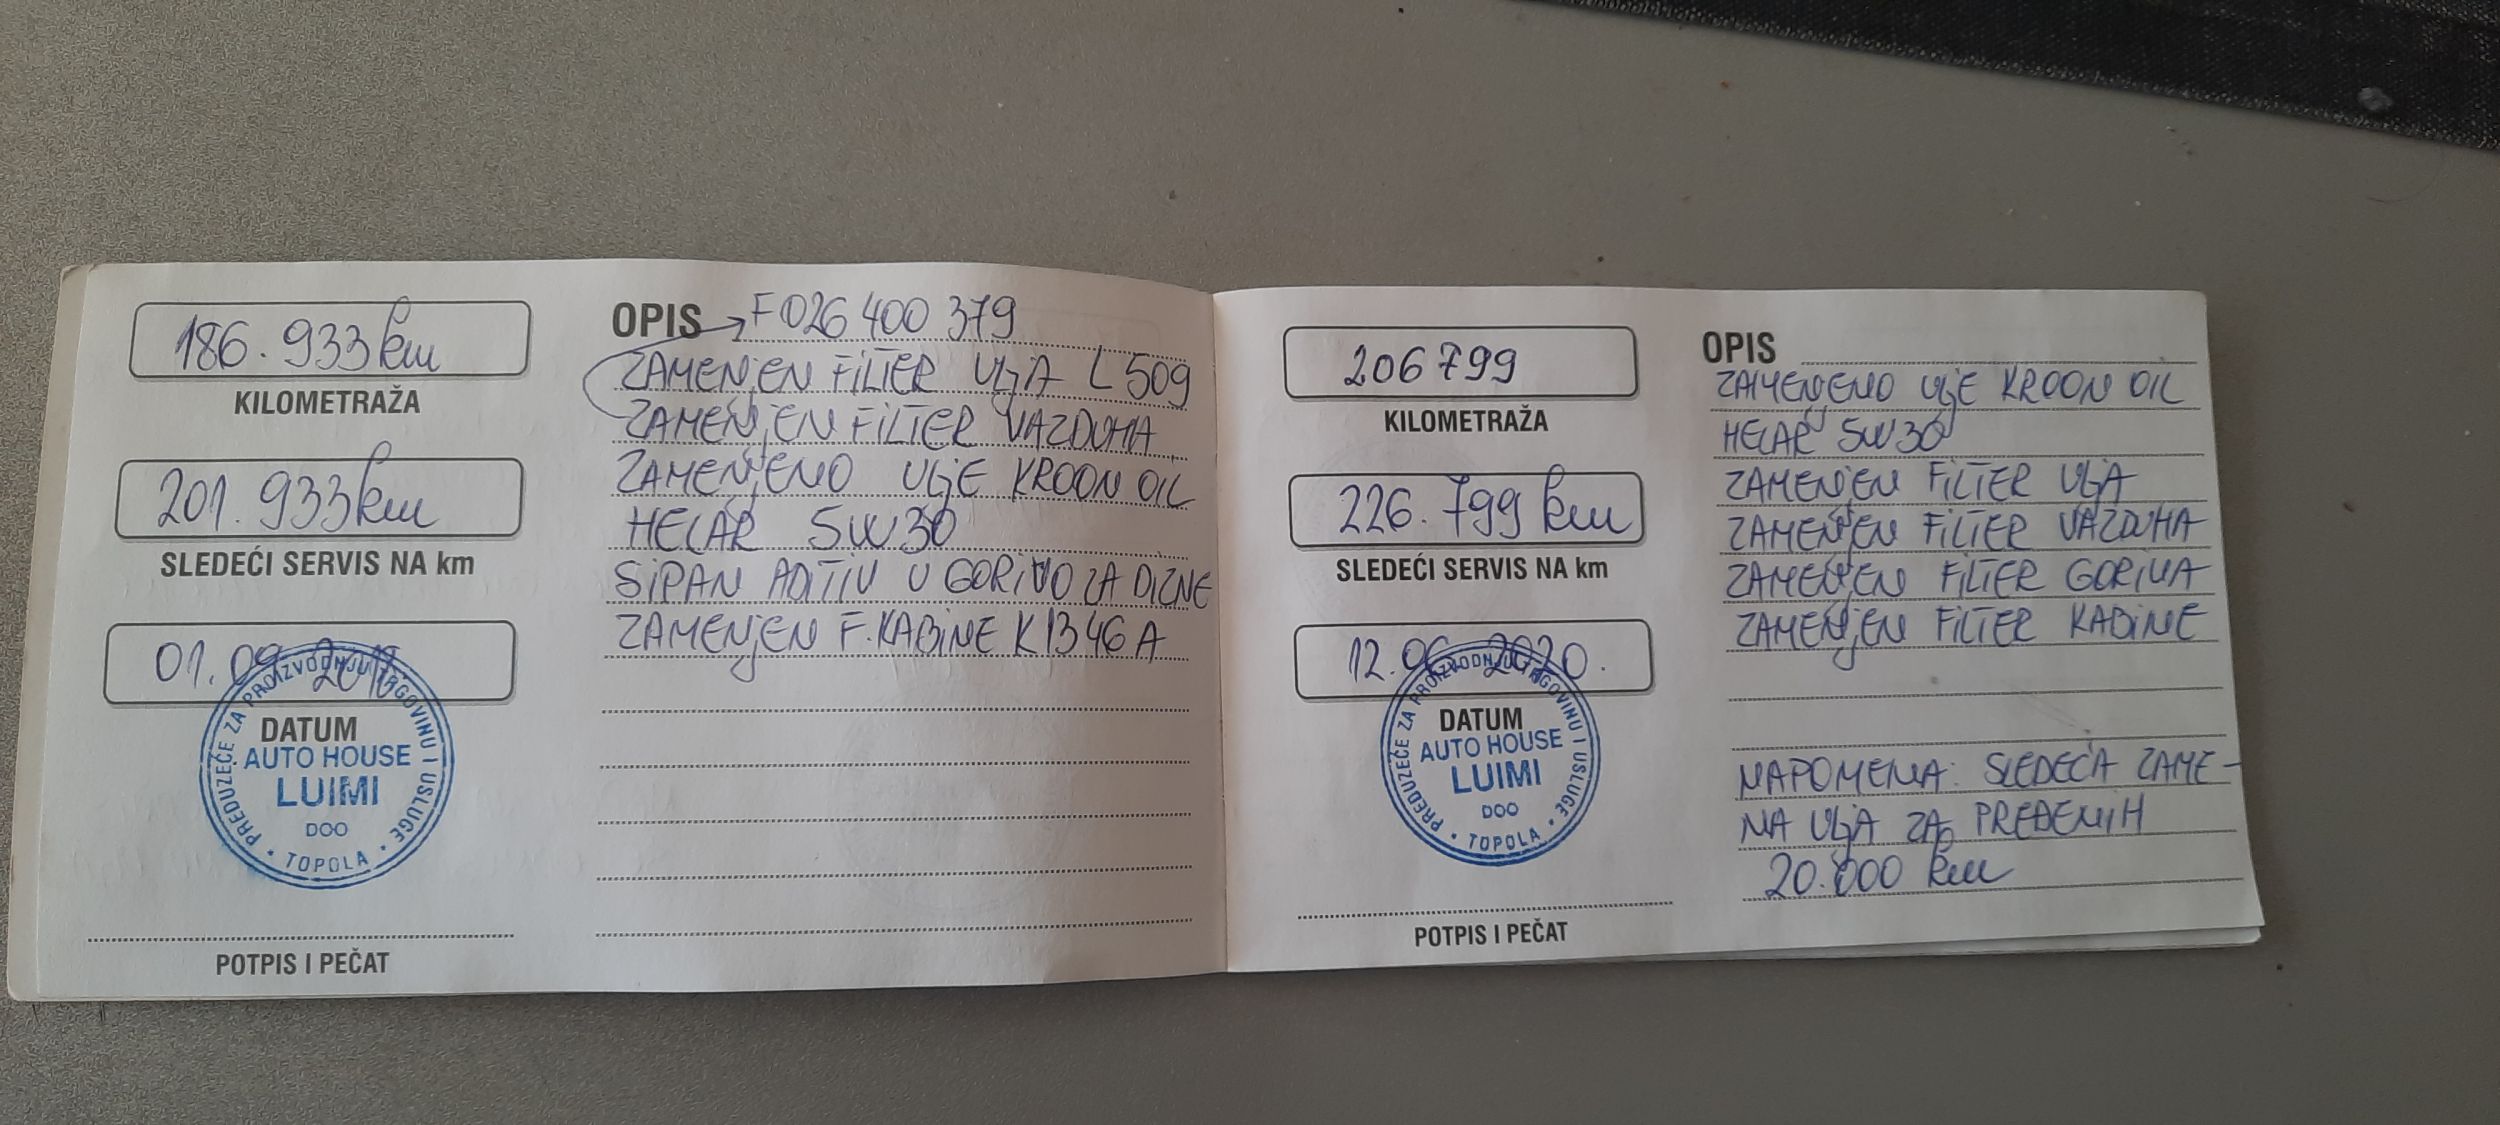 186.933 km
KILOMETRAŽA
201.933 km
SLEDEĆI SERVIS NA km
01.09.
DATUM
PREDUZEĆE ZA PROIZVODNJU TRGOVINU I USLUGE
AUTO HOUSE
LUIMI
DOO
• TOPOLA •
POTPIS I PEČAT
OPIS → F 026 400 379
ZAMENJEN FILTER ULJA L 509
ZAMENJEN FILTER VAZDUHA
ZAMENJENO ULJE KROON OIL
HELAR 5W30
SIPAN ADITIV U GORIVO ZA DIZNE
ZAMENJEN F. KABINE K1346A
206799
KILOMETRAŽA
226.799 km
SLEDEĆI SERVIS NA km
12.06.2020.
DATUM
PREDUZEĆE ZA PROIZVODNJU TRGOVINU I USLUGE
AUTO HOUSE
LUIMI
DOO
• TOPOLA •
POTPIS I PEČAT
OPIS
ZAMENJENO ULJE KROON OIL
HELAR 5W30
ZAMENJEN FILTER ULJA
ZAMENJEN FILTER VAZDUHA
ZAMENJEN FILTER GORIVA
ZAMENJEN FILTER KABINE
NAPOMENA: SLEDEĆA ZAME-
NA ULJA ZA PREĐENIH
20.000 km